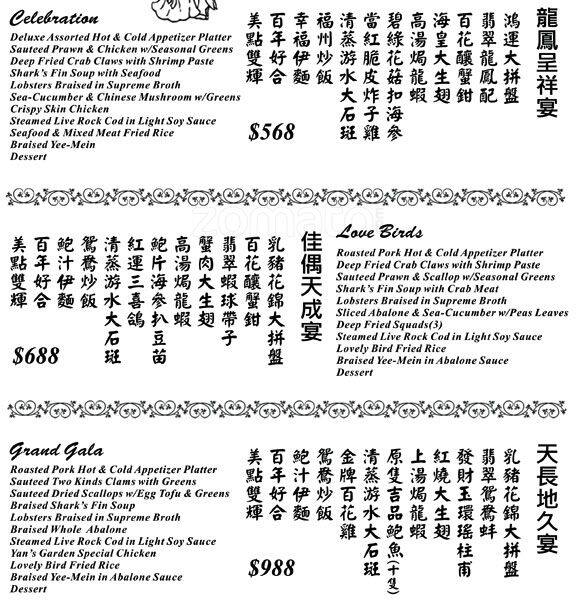 Celebration
Deluxe Assorted Hot & Cold Appetizer Platter
Sauteed Prawn & Chicken w/Seasonal Greens
Deep Fried Crab Claws with Shrimp Paste
Shark's Fin Soup with Seafood
Lobsters Braised in Supreme Broth
Sea-Cucumber & Chinese Mushroom w/Greens
Crispy Skin Chicken
Steamed Live Rock Cod in Light Soy Sauce
Seafood & Mixed Meat Fried Rice
Braised Yee-Mein
Dessert
$568
龍鳳呈祥宴
鴻運大拼盤
翡翠龍鳳配
百花釀蟹鉗
海皇大生翅
高湯焗龍蝦
碧綠花菇扣海參
當紅脆皮炸子雞
清蒸游水大石斑
福州炒飯
幸福伊麵
百年好合
美點雙輝
zomato
Love Birds
Roasted Pork Hot & Cold Appetizer Platter
Deep Fried Crab Claws with Shrimp Paste
Sauteed Prawn & Scallop w/Seasonal Greens
Shark's Fin Soup with Crab Meat
Lobsters Braised in Supreme Broth
Sliced Abalone & Sea-Cucumber w/Peas Leaves
Deep Fried Squads(3)
Steamed Live Rock Cod in Light Soy Sauce
Lovely Bird Fried Rice
Braised Yee-Mein in Abalone Sauce
Dessert
佳偶天成宴
乳豬花錦大拼盤
百花釀蟹鉗
翡翠蝦球帶子
蟹肉大生翅
高湯焗龍蝦
鮑片海參扒豆苗
紅運三喜鴿
清蒸游水大石斑
鴛鴦炒飯
鮑汁伊麵
百年好合
美點雙輝
$688
Grand Gala
Roasted Pork Hot & Cold Appetizer Platter
Sauteed Two Kinds Clams with Greens
Sauteed Dried Scallops w/Egg Tofu & Greens
Braised Shark's Fin Soup
Lobsters Braised in Supreme Broth
Braised Whole Abalone
Steamed Live Rock Cod in Light Soy Sauce
Yan's Garden Special Chicken
Lovely Bird Fried Rice
Braised Yee-Mein in Abalone Sauce
Dessert
$988
天長地久宴
乳豬花錦大拼盤
翡翠鴛鴦蚌
發財玉環瑤柱甫
紅燒大生翅
上湯焗龍蝦
原隻吉品鮑魚(十隻)
清蒸游水大石斑
金牌百花雞
鴛鴦炒飯
鮑汁伊麵
百年好合
美點雙輝